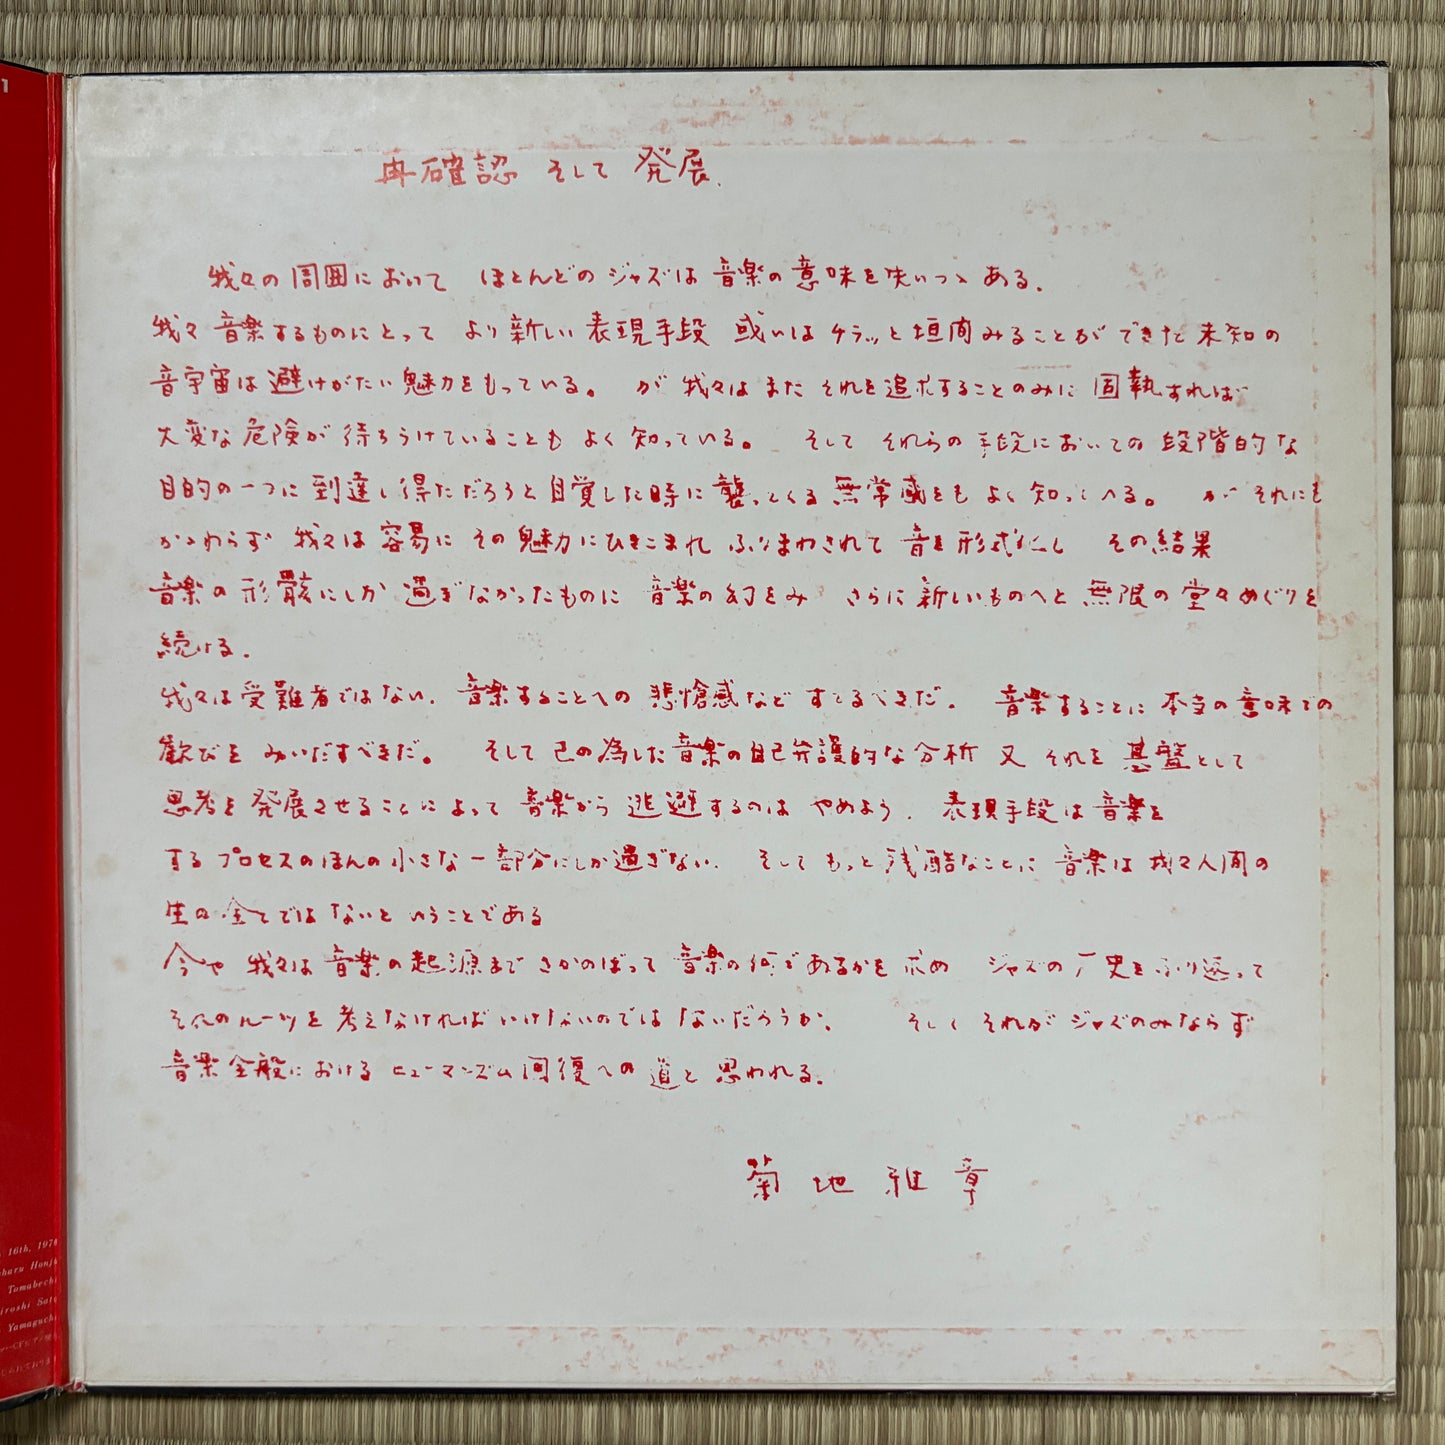 1
再確認 そして 発展.
我々の周囲において ほとんどのジャズは音楽の意味を失いつゝある.
我々音楽するものにとって より新しい表現手段 或いはチラッと垣間みることができた未知の
音宇宙は避けがたい魅力をもっている。 が我々はまたそれを追求することのみに固執すれば
大変な危険が待ちうけていることもよく知っている。 そしてそれらの手段においての段階的な
目的の一つに到達し得ただろうと自覚した時に襲ってくる無常感をもよく知っている。 がそれにも
かゝわらず我々は容易にその魅力にひきこまれ ふりまわされて音を形式化し その結果
音楽の形骸にしか過ぎなかったものに 音楽の幻をみ さらに新しいものへと無限の堂々めぐりを
続ける.
我々は受難者ではない. 音楽することへの悲愴感などすてるべきだ. 音楽することに本当の意味での
歓びをみいだすべきだ。 そして己の為した音楽の自己弁護的な分析 又それを基盤として
思考を発展させることによって音楽から逃避するのはやめよう. 表現手段は音楽を
するプロセスのほんの小さな一部分にしか過ぎない. そしてもっと残酷なことに音楽は我々人間の
生の全てではないということである
今や我々は音楽の起源までさかのぼって音楽の何であるかを求め ジャズの歴史をふり返って
そのルーツを考えなければいけないのではないだろうか. そしてそれがジャズのみならず
音楽全般におけるヒューマニズム回復への道と思われる.
菊地雅章
16th, 1970
Tomabechi
iroshi Sato
Yamaguchi